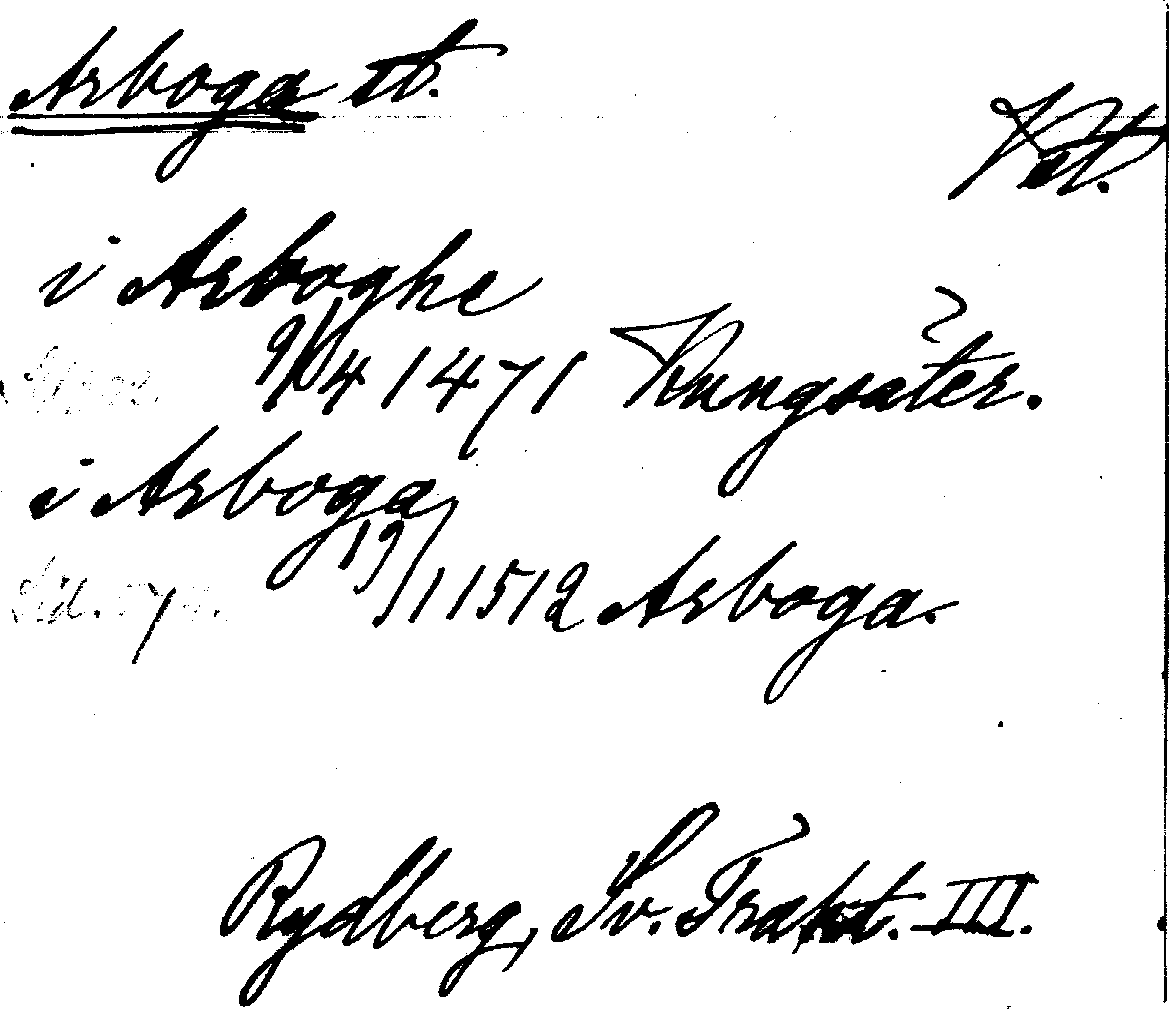 Arboga st.
Vstm.
i Arboghe
9/4 1471 Kungsäter.
i Arboga
19/1 1512 Arboga.
Rydberg, Sv. Trakt. III.